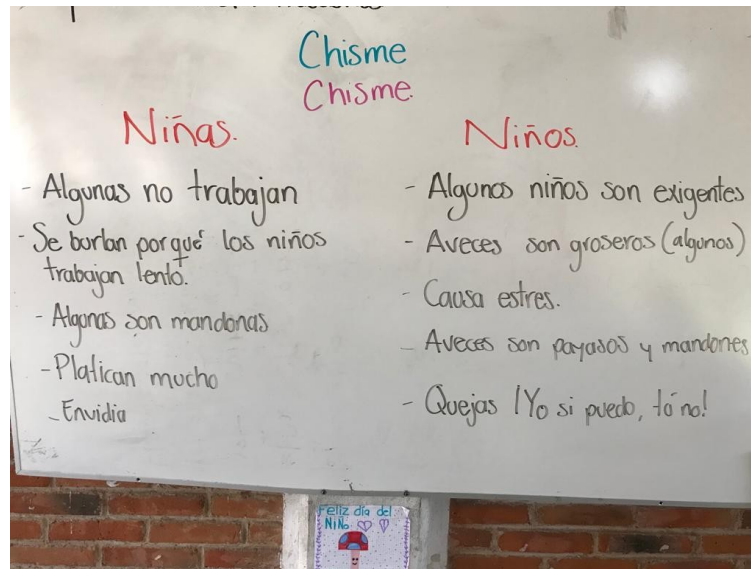 Chisme
Chisme.
Niñas.
- Algunas no trabajan
- Se burlan porqué los niños
trabajan lento.
- Algunas son mandonas
- Platican mucho
- Envidia
Niños.
- Algunos niños son exigentes
- Aveces son groseros (algunos)
- Causa estres.
- Aveces son payasos y mandones
- Quejas ¡Yo si puedo, tú no!
Feliz día del
Niño